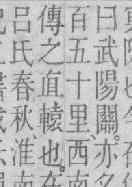 曰武陽關。亦名
百五十里西南
傳之直轅也。在
呂氏春秋淮南